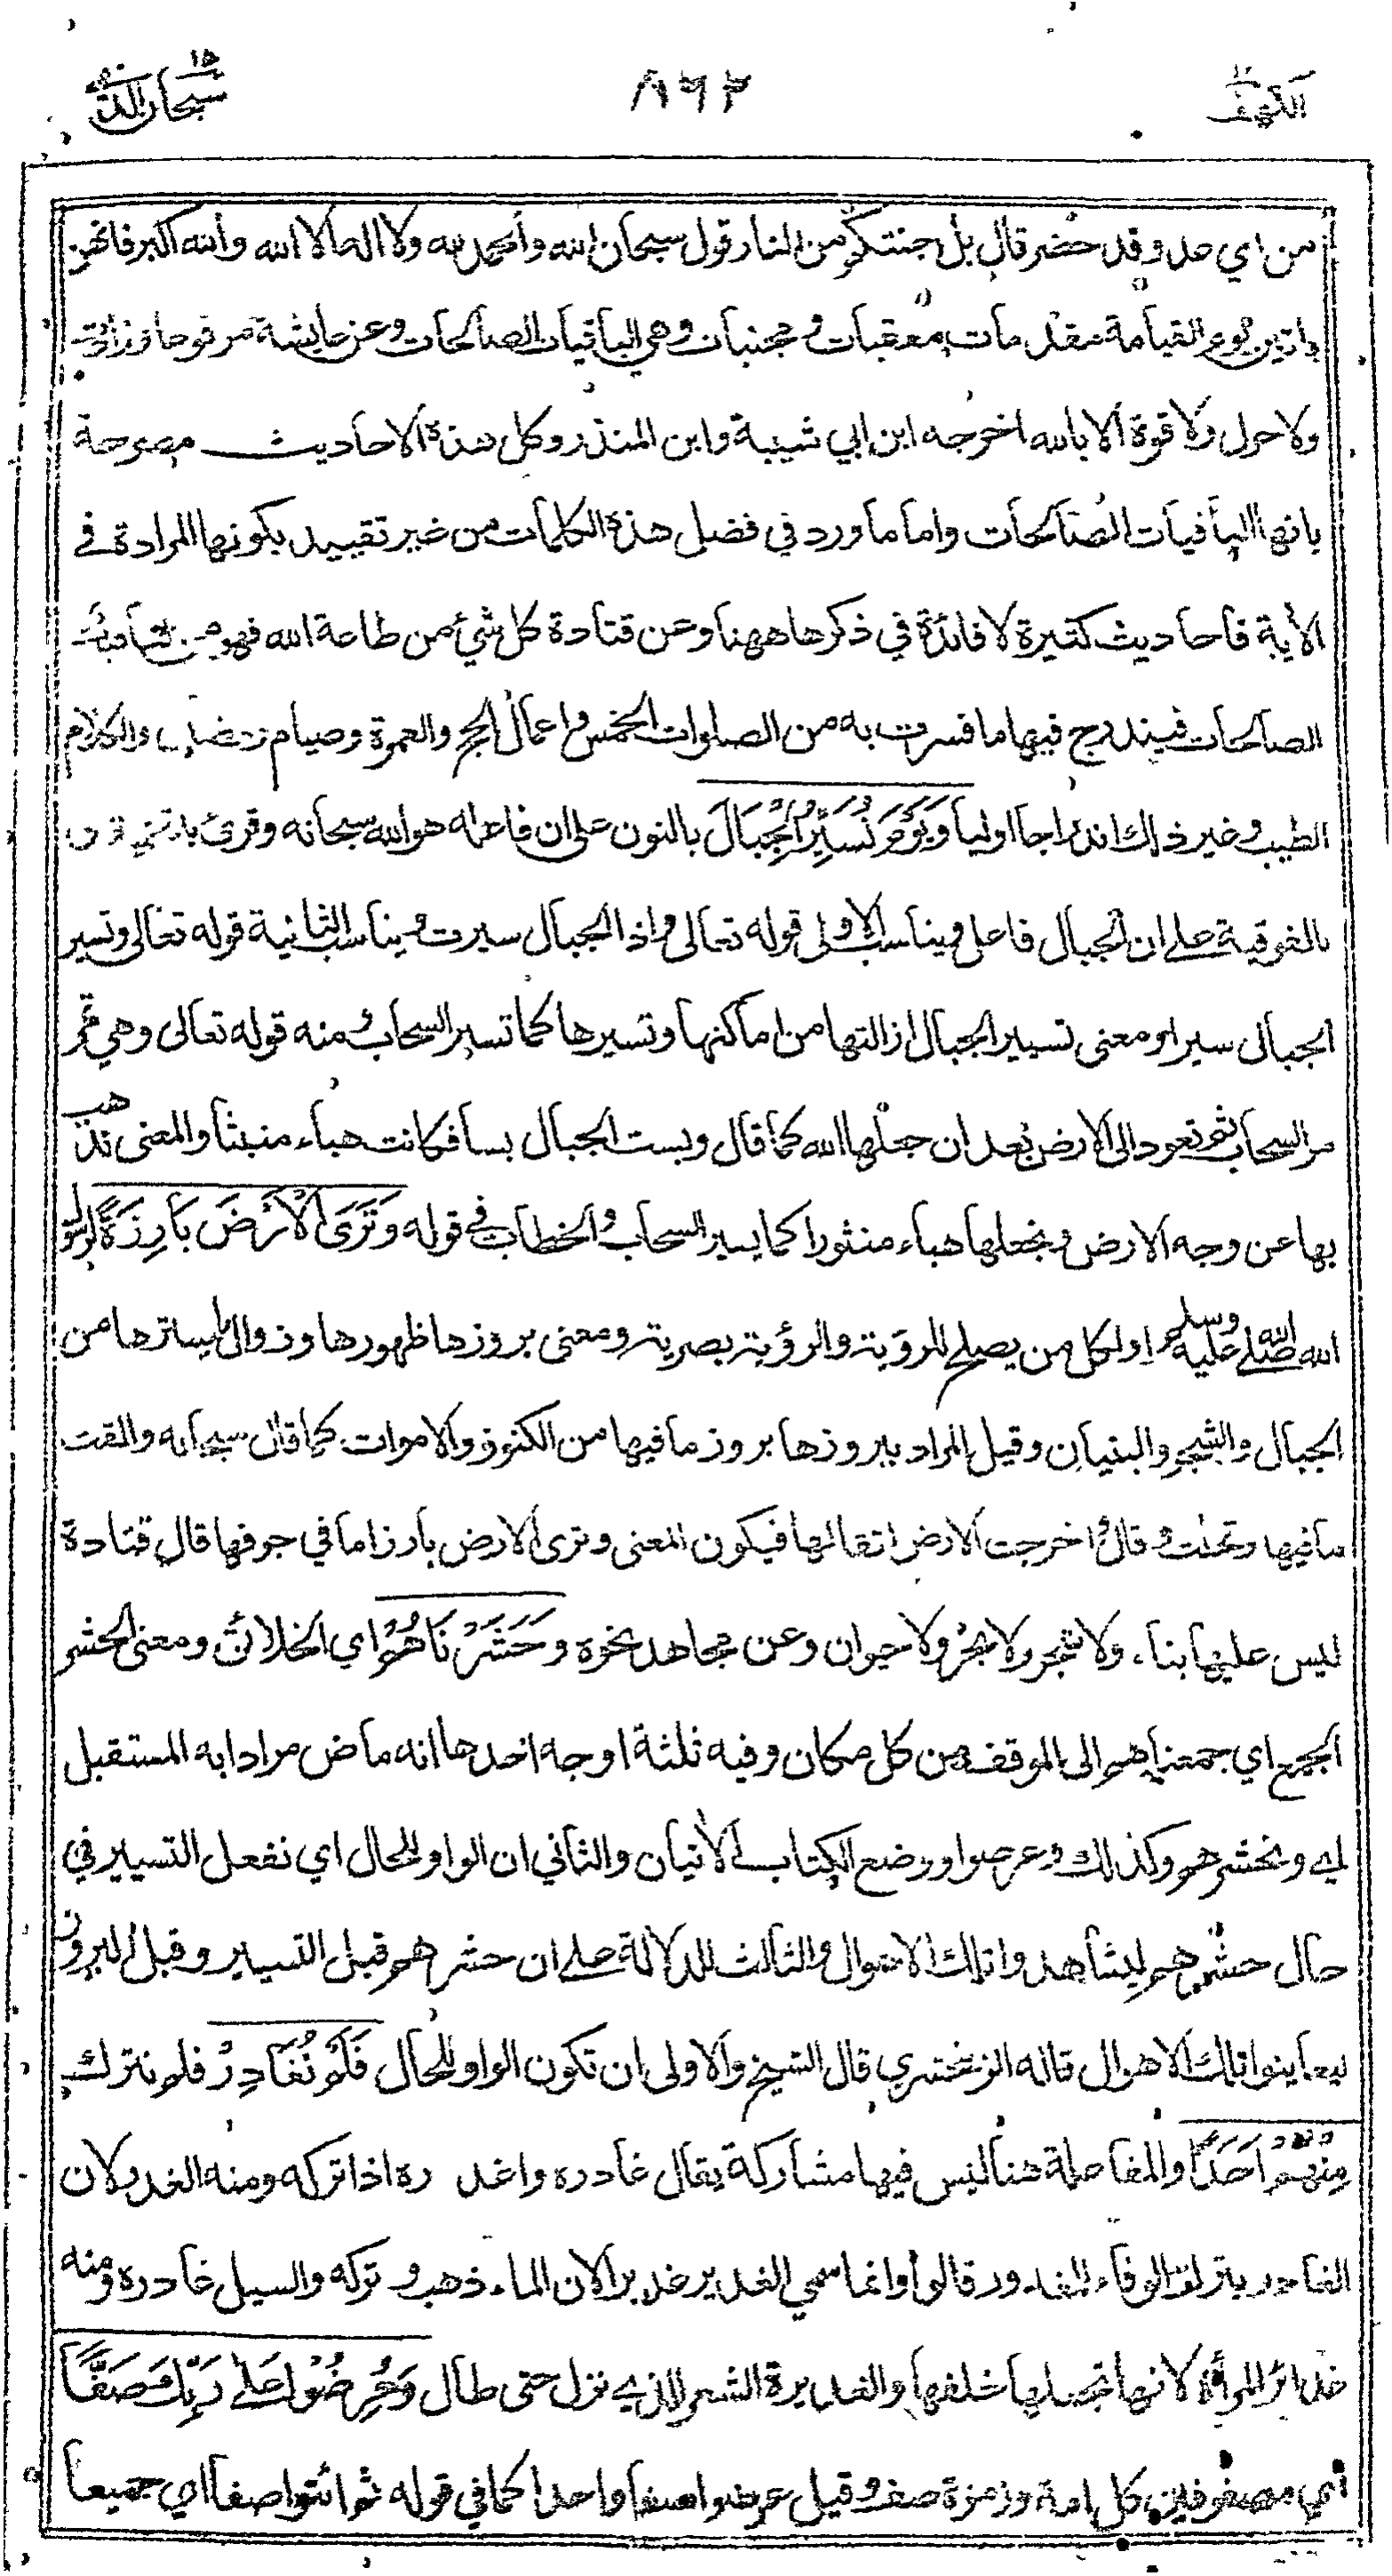 الكهف
٨٦٢
سبحان الذي ١٥
من اي عدو قد حضر قال بل جنتكم من النار قول سبحان الله والحمد لله ولا اله الا الله والله اكبر فانهن
ياتين يوم القيامة مقدمات معقبات ومجنبات وهي الباقيات الصالحات وعن عايشة مرفوعا وزادت
ولا حول ولا قوة الا بالله اخرجه ابن ابي شيبة وابن المنذر وكل هذة الاحاديث مصرحة
بانها الباقيات الصالحات واما ما ورد في فضل هذة الكلمات من غير تقييد بكونها المرادة في
الأية فاحاديث كثيرة لا فائدة في ذكرها ههنا وعن قتادة كل شيء من طاعة الله فهو من الباقيات
الصالحات فيندرج فيها ما فسرت به من الصلوات الخمس واعمال الحج والعمرة وصيام رمضان والكلام
الطيب وغير ذلك اندراجا اوليا وَيَوْمَ نُسَيِّرُ الْجِبَالَ بالنون على ان فاعله هو الله سبحانه وقرئ
بالفوقية على ان الجبال فاعل ويناسب الاولى قوله تعالى واذا الجبال سيرت ويناسب الثانية قوله تعالى وتسير
الجبال سيرا ومعنى تسيير الجبال ازالتها من اماكنها وتسيرها كما تسير السحاب ومنه قوله تعالى وهي تمر
مر السحاب ثم تعود الى الارض بعد ان جعلها الله كما قال وبست الجبال بسا فكانت هباء منبثا والمعنى نذهب
بها عن وجه الارض ونجعلها هباء منثورا كما يسير السحاب والخطاب في قوله وَتَرَى الْأَرْضَ بَارِزَةً لرسول
الله صلى الله عليه وسلم او لكل من يصلح للرؤية والرؤية بصرية ومعنى بروزها ظهورها وزوال ما يسترها من
الجبال والشجر والبنيان وقيل المراد ببروزها بروز ما فيها من الكنوز والاموات كما قال سبحانه والقت
ما فيها وتخلت وقال واخرجت الارض اثقالها فيكون المعنى وترى الارض بارزا ما في جوفها قال قتادة
ليس عليها بناء ولا شجر ولا بحر ولا حيوان وعن مجاهد نحوه وَحَشَرْنَاهُمْ اي الخلائق ومعنى الحشر
الجمع اي جمعناهم الى الموقف من كل مكان وفيه ثلثة اوجه احدها انه ماض مرادا به المستقبل
اي ونحشرهم وكذلك وعرضوا ووضع الكتاب الاتيان والثاني ان الواو للحال اي نفعل التسيير في
حال حشرهم ليشاهدوا تلك الاهوال والثالث للدلالة على ان حشرهم قبل التسيير وقبل البروز
ليعاينوا تلك الاهوال قاله الزمخشري قال الشيخ والاولى ان تكون الواو للحال فَلَمْ نُغَادِرْ فلم نترك
مِنْهُمْ أَحَدًا والمفاعلة هنا ليس فيها مشاركة يقال غادره واغدره اذا تركه ومنه الغدر لان
الغادر يترك الوفاء للمغدور قالوا وانما سمي الغدير غديرا لان الماء ذهب وتركه والسيل غادره ومنه
غدائر المرأة لانها تجعلها خلفها والغديرة الشعر الذي نزل حتى طال وَعُرِضُوا عَلَى رَبِّكَ صَفًّا
اي مصفوفين كل امة وزمرة صف وقيل عرضوا صفا واحدا كما في قوله ثم ائتوا صفا اي جميعا